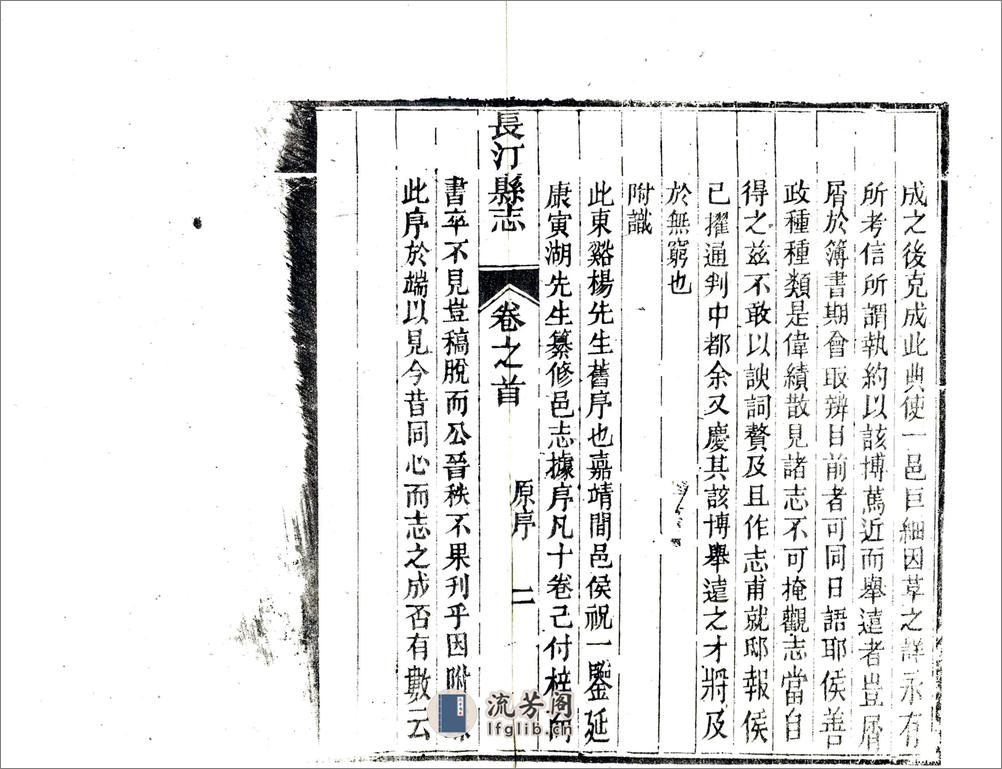 成之後克成此典使一邑巨細因革之詳永有
所考信所謂執約以該博萬近而舉遠者豈屑
屑於簿書期會取辨目前者可同日語耶侯善
政種種類是偉績散見諸志不可掩觀志當自
得之茲不敢以諛詞贅及且作志甫就邸報侯
已擢通判中都余又慶其該博舉遠之才將及
於無窮也
附識
此東谿楊先生舊序也嘉靖間邑侯祝一鑒延
康寅湖先生纂修邑志據序凡十卷己付梓而
長汀縣志
卷之首
原序
二
書卒不見豈稿脫而公晉秩不果刊乎因附
此序於端以見今昔同心而志之成否有數云
流芳阁
lfglib.cn